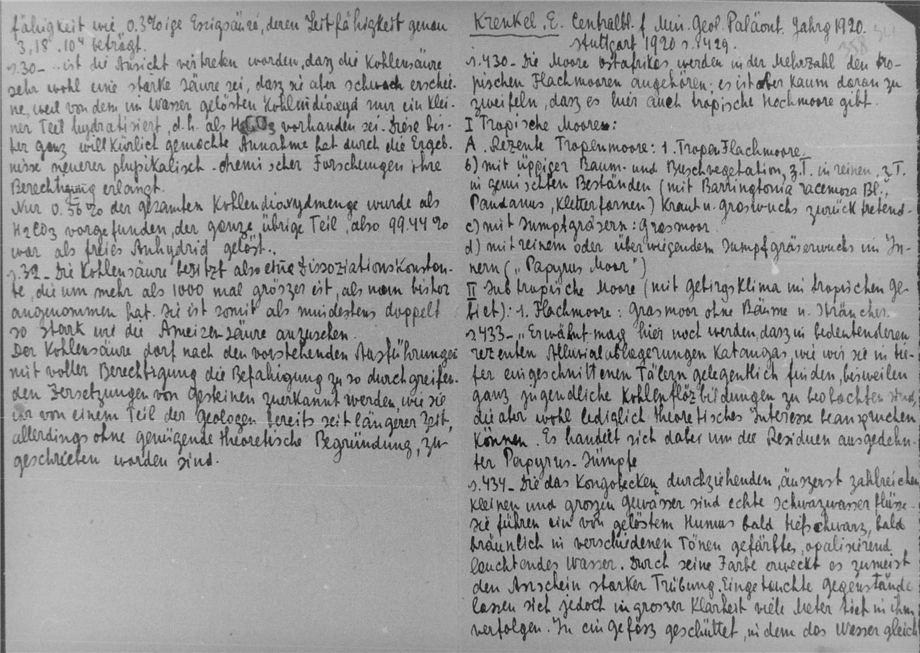 fähigkeit wie 0.3%oige Essigsäure, deren Leitfähigkeit genau
3,18 . 10⁴ beträgt.
s.30 – .. ist die Ansicht vertreten worden, dasz die Kohlensäure
sehr wohl eine starke Säure sei, dasz sie aber schwach erschei-
ne, weil von dem im Wasser gelösten Kohlendioxyd nur ein klei-
ner Teil hydratisiert, d.h. als H2CO3 vorhanden sei. Diese bis-
her ganz willkürlich gemachte Annahme hat durch die Ergeb-
nisse neuerer physikalisch-chemischer Forschungen ihre
Berechtigung erlangt.
Nur 0.56% der gesamten Kohlendioxydmenge wurde als
H2CO3 vorgefunden, der ganze übrige Teil, also 99.44%
war als freies Anhydrid gelöst..
s.32 – Die Kohlensäure besitzt also eine Dissoziationskonstan-
te, die um mehr als 1000 mal grösser ist, als man bisher
angenommen hat. Sie ist somit als mindestens doppelt
so stark wie die Ameisensäure anzusehen.
Der Kohlensäure darf nach den vorstehenden Ausführungen
mit voller Berechtigung die Befähigung zu so durchgreifen-
den Zersetzungen von Gesteinen zuerkannt werden, wie sie
ihr von einem Teil der Geologen bereits seit längerer Zeit,
allerdings ohne genügende theoretische Begründung, zu-
geschrieben worden sind.
Krenkel. E. Centralbl. f Min. Geol. Paläont. Jahrg 1920.
Stuttgart 1920 s. 429.
s.430 – Die Moore Ostafrikas werden in der Mehrzahl den tro-
pischen Flachmooren angehören; es ist aber kaum daran zu
zweifeln, dasz es hier auch tropische Hochmoore gibt.
I Tropische Moore:
A. Rezente Tropenmoore: 1. Tropen Flachmoore
b) mit üppiger Baum- und Buschvegetation, z.T. in reinen, z.T.
in gemischten Beständen (mit Barringtonia racemosa Bl.,
Pandanus, Kletterfarnen) Kraut u. graswuchs zurücktretend-
c) mit Sumpfgräsern: grasmoor
d) mit reinem oder überwiegendem Sumpfgräserwuchs im In-
nern („Papyrus Moor")
II Subtropische Moore (mit gebirgsklima im tropischen Ge-
biet): 1. Flachmoore: Grasmoor ohne Bäume u. Sträucher.
s.433 – „Erwähnt mag hier noch werden, dasz in bedeutenderen
rezenten Alluvialablagerungen Katangas, wie wir sie in tie-
fer eingeschnittenen Tälern gelegentlich finden, bisweilen
ganz jugendliche Kohlenflözbildungen zu beobachten sind,
die aber wohl lediglich theoretisches Interesse beanspruchen
können. Es handelt sich dabei um die Residuen ausgedehn-
ter Papyrus-Sümpfe
s.434 – Die das Kongobecken durchziehenden, äuszerst zahlreichen
kleinen und grossen gewässer sind echte Schwarzwasserflüsse-
sie führen ein von gelöstem Humus bald tiefschwarz, bald
bräunlich in verschiedenen Tönen gefärbtes, opalisirend
leuchtendes Wasser. Durch seine Farbe erweckt es zumeist
den Anschein starker Trübung. Eingetauchte gegenstände
lassen sich jedoch in grosser Klarheit viele Meter tief in ihm
verfolgen. In ein gefäsz geschüttet, in dem das Wasser gleich